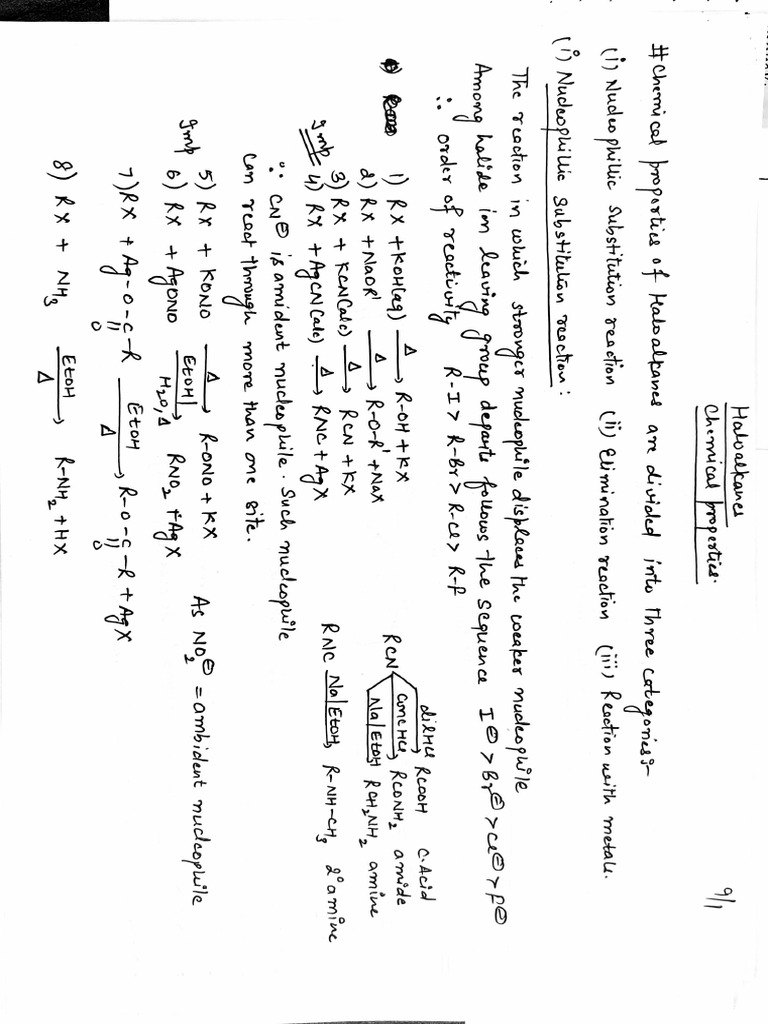 9/1
Haloalkanes
Chemical properties.
# Chemical properties of Haloalkanes are divided into three categories:-
(i) Nucleophillic Substitution reaction (ii) Elimination reaction (iii) Reaction with metals.
(i) Nucleophillic Substitution reaction :
The reaction in which stronger nucleophile displaces the weaker nucleophile
Among halide ion leaving group departs follows the sequence I⊖ > Br⊖ > Cl⊖ > F⊖
∴ order of reactivity R-I > R-Br > R-Cl > R-F
1) RX + KOH(aq) —Δ→ R-OH + KX
2) RX + NaOR' —Δ→ R-O-R' + NaX
3) RX + KCN(alc) —Δ→ RCN + KX
Imp 4) RX + AgCN(alc) —Δ→ RNC + AgX
RCN —dil HCl→ RCOOH C. Acid
—Conc HCl→ RCONH₂ amide
—Na/EtOH→ RCH₂NH₂ amine
RNC —Na/EtOH→ R-NH-CH₃ 2° amine
∵ CN⊖ is amident nucleophile. Such nucleophile
can react through more than one site.
5) RX + KONO —Δ→ R-ONO + KX
Imp 6) RX + AgONO —EtOH/H₂O, Δ→ RNO₂ + AgX
As NO₂⊖ = ambident nucleophile
7) RX + Ag-O-C(=O)-R —EtOH/Δ→ R-O-C(=O)-R + AgX
8) RX + NH₃ —EtOH/Δ→ R-NH₂ + HX